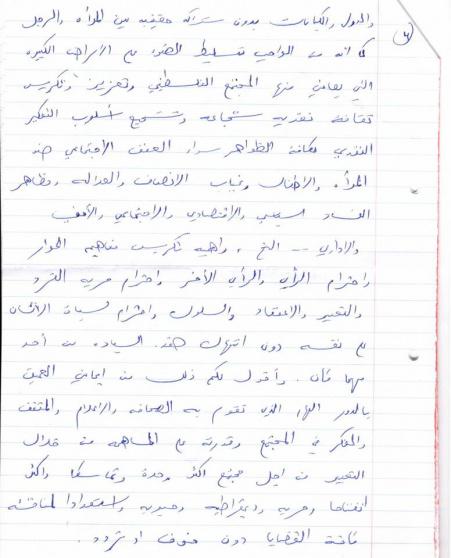 (٦)
والدول والكيانات بدون شراكة حقيقية بين المرأة والرجل
كما أنه من الواجب تسليط الضوء على الأمراض الكثيرة
التي يعاني منها المجتمع الفلسطيني وتعزيز وتكريس
ثقافة نقدية شجاعة وتشجيع أسلوب التفكير
النقدي لكافة الظواهر سواء العنف الاجتماعي ضد
المرأة والأطفال وغياب الإنصاف والعدالة ومظاهر
الفساد السياسي والاقتصادي والاجتماعي والأمني
والإداري -- الخ ، وأهمية تكريس مفاهيم الحوار
واحترام الرأي والرأي الآخر واحترام حرية الفرد
والتعبير والاعتقاد والسلوك واحترام الإنسان
على نفسه دون انتهاك هذه السيادة من أحد
مهما كان . وأقول لكم ذلك من إيماني العميق
بالدور الهام الذي تقوم به الصحافة والإعلام والمثقف
والمفكر في المجتمع وقدرته على المساهمة من خلال
التعبير من أجل مجتمع أكثر وحدة وتماسكا وأكثر
انفتاحا وحرية وديمقراطية وحيوية واستعدادا لمناقشة
كافة القضايا دون خوف أو تردد .